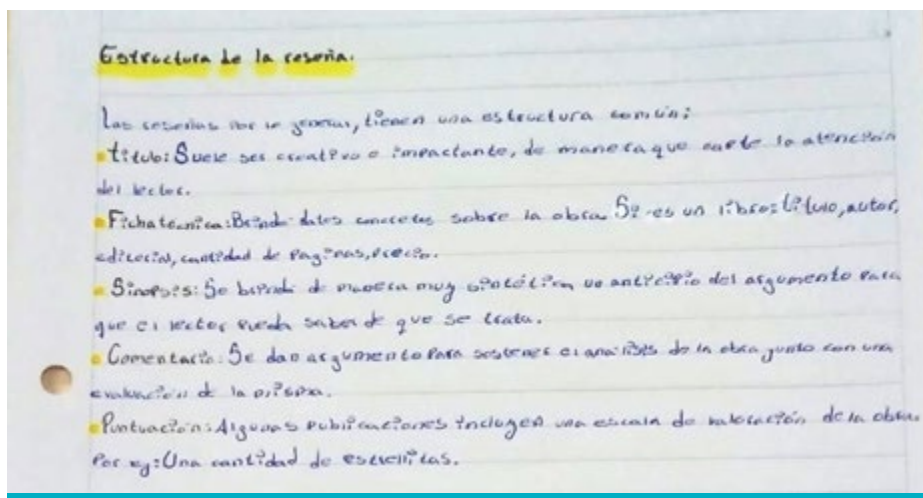 Estructura de la reseña.
Las reseñas por lo general, tienen una estructura común:
Título: Suele ser creativo o impactante, de manera que capte la atención
del lector.
Ficha tecnica: Brinda datos concretos sobre la obra. Si es un libro: título, autor,
editorial, cantidad de paginas, precio.
Sinopsis: Se brinda de manera muy sintética un anticipio del argumento para
que el lector pueda saber de que se trata.
Comentario: Se dan argumento para sostener el analisis de la obra junto con una
evaluación de la misma.
Puntuación: Algunas publicaciones incluyen una escala de valoración de la obra.
Por ej: Una cantidad de estrellitas.